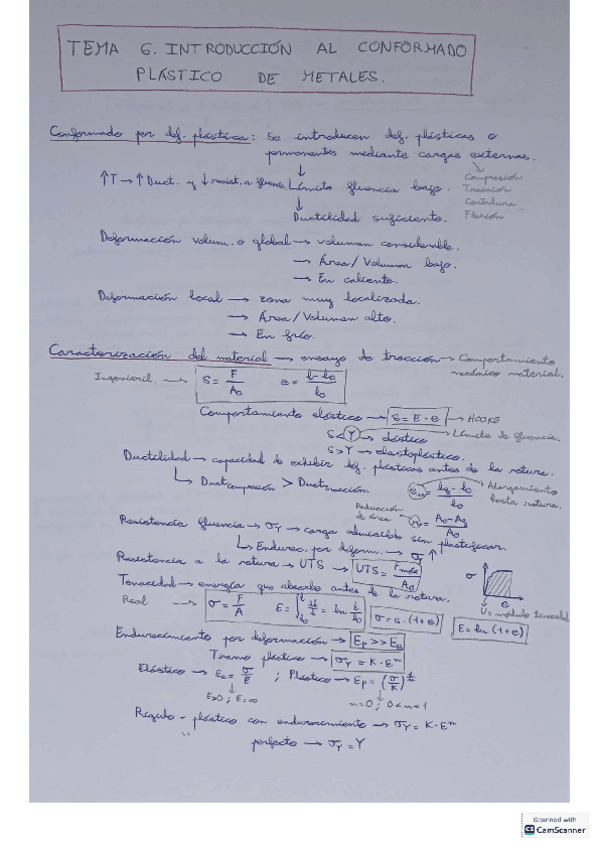 TEMA 6. INTRODUCCIÓN AL CONFORMADO
PLÁSTICO DE METALES.
Conformado por def. plástica: Se introducen def. plásticas o
permanentes mediante cargas externas.
↑T → ↑Duct. y ↓resist. a fluencia. Límite fluencia bajo.
Compresión
Tracción
Cortadura
Flexión
↓
Ductilidad suficiente.
Deformación volum. o global → volumen considerable.
→ Área/Volumen bajo.
→ En caliente.
Deformación local → zona muy localizada.
→ Área/Volumen alto.
→ En frío.
Caracterización del material → ensayo de tracción → Comportamiento
mecánico material.
Ingenieril. → S = F/A₀ e = (l - l₀)/l₀
Comportamiento elástico → S = E · e → HOOKE
S < Y → elástico → Límite de fluencia.
S > Y → elastoplástico.
Ductilidad → capacidad de exhibir def. plásticas antes de la rotura.
↳ Duct compresión > Duct tracción.
Alargamiento
hasta rotura.
Reducción
de área
Resistencia fluencia → σY → carga admisible sin plastificar.
↳ Endurec. por deform. → σ ↑
Resistencia a la rotura → UTS → UTS = Fmáx/A₀
Tenacidad → energía que absorbe antes de la rotura.
σ
e
U = módulo tenacidad
Real → σ = F/A ε = ∫ dl/l = ln l/l₀ σ = s · (1+e) ε = ln (1+e)
Endurecimiento por deformación → εp >> εe
Tramo plástico → σY = K · εⁿ
Elástico → εe = σ/E ; Plástico → εp = (σ/K)^(1/n)
E>0 ; E=∞ n=0 ; 0<n<1
Rígido - plástico con endurecimiento → σY = K · εⁿ
" perfecto → σY = Y
Scanned with
CS CamScanner